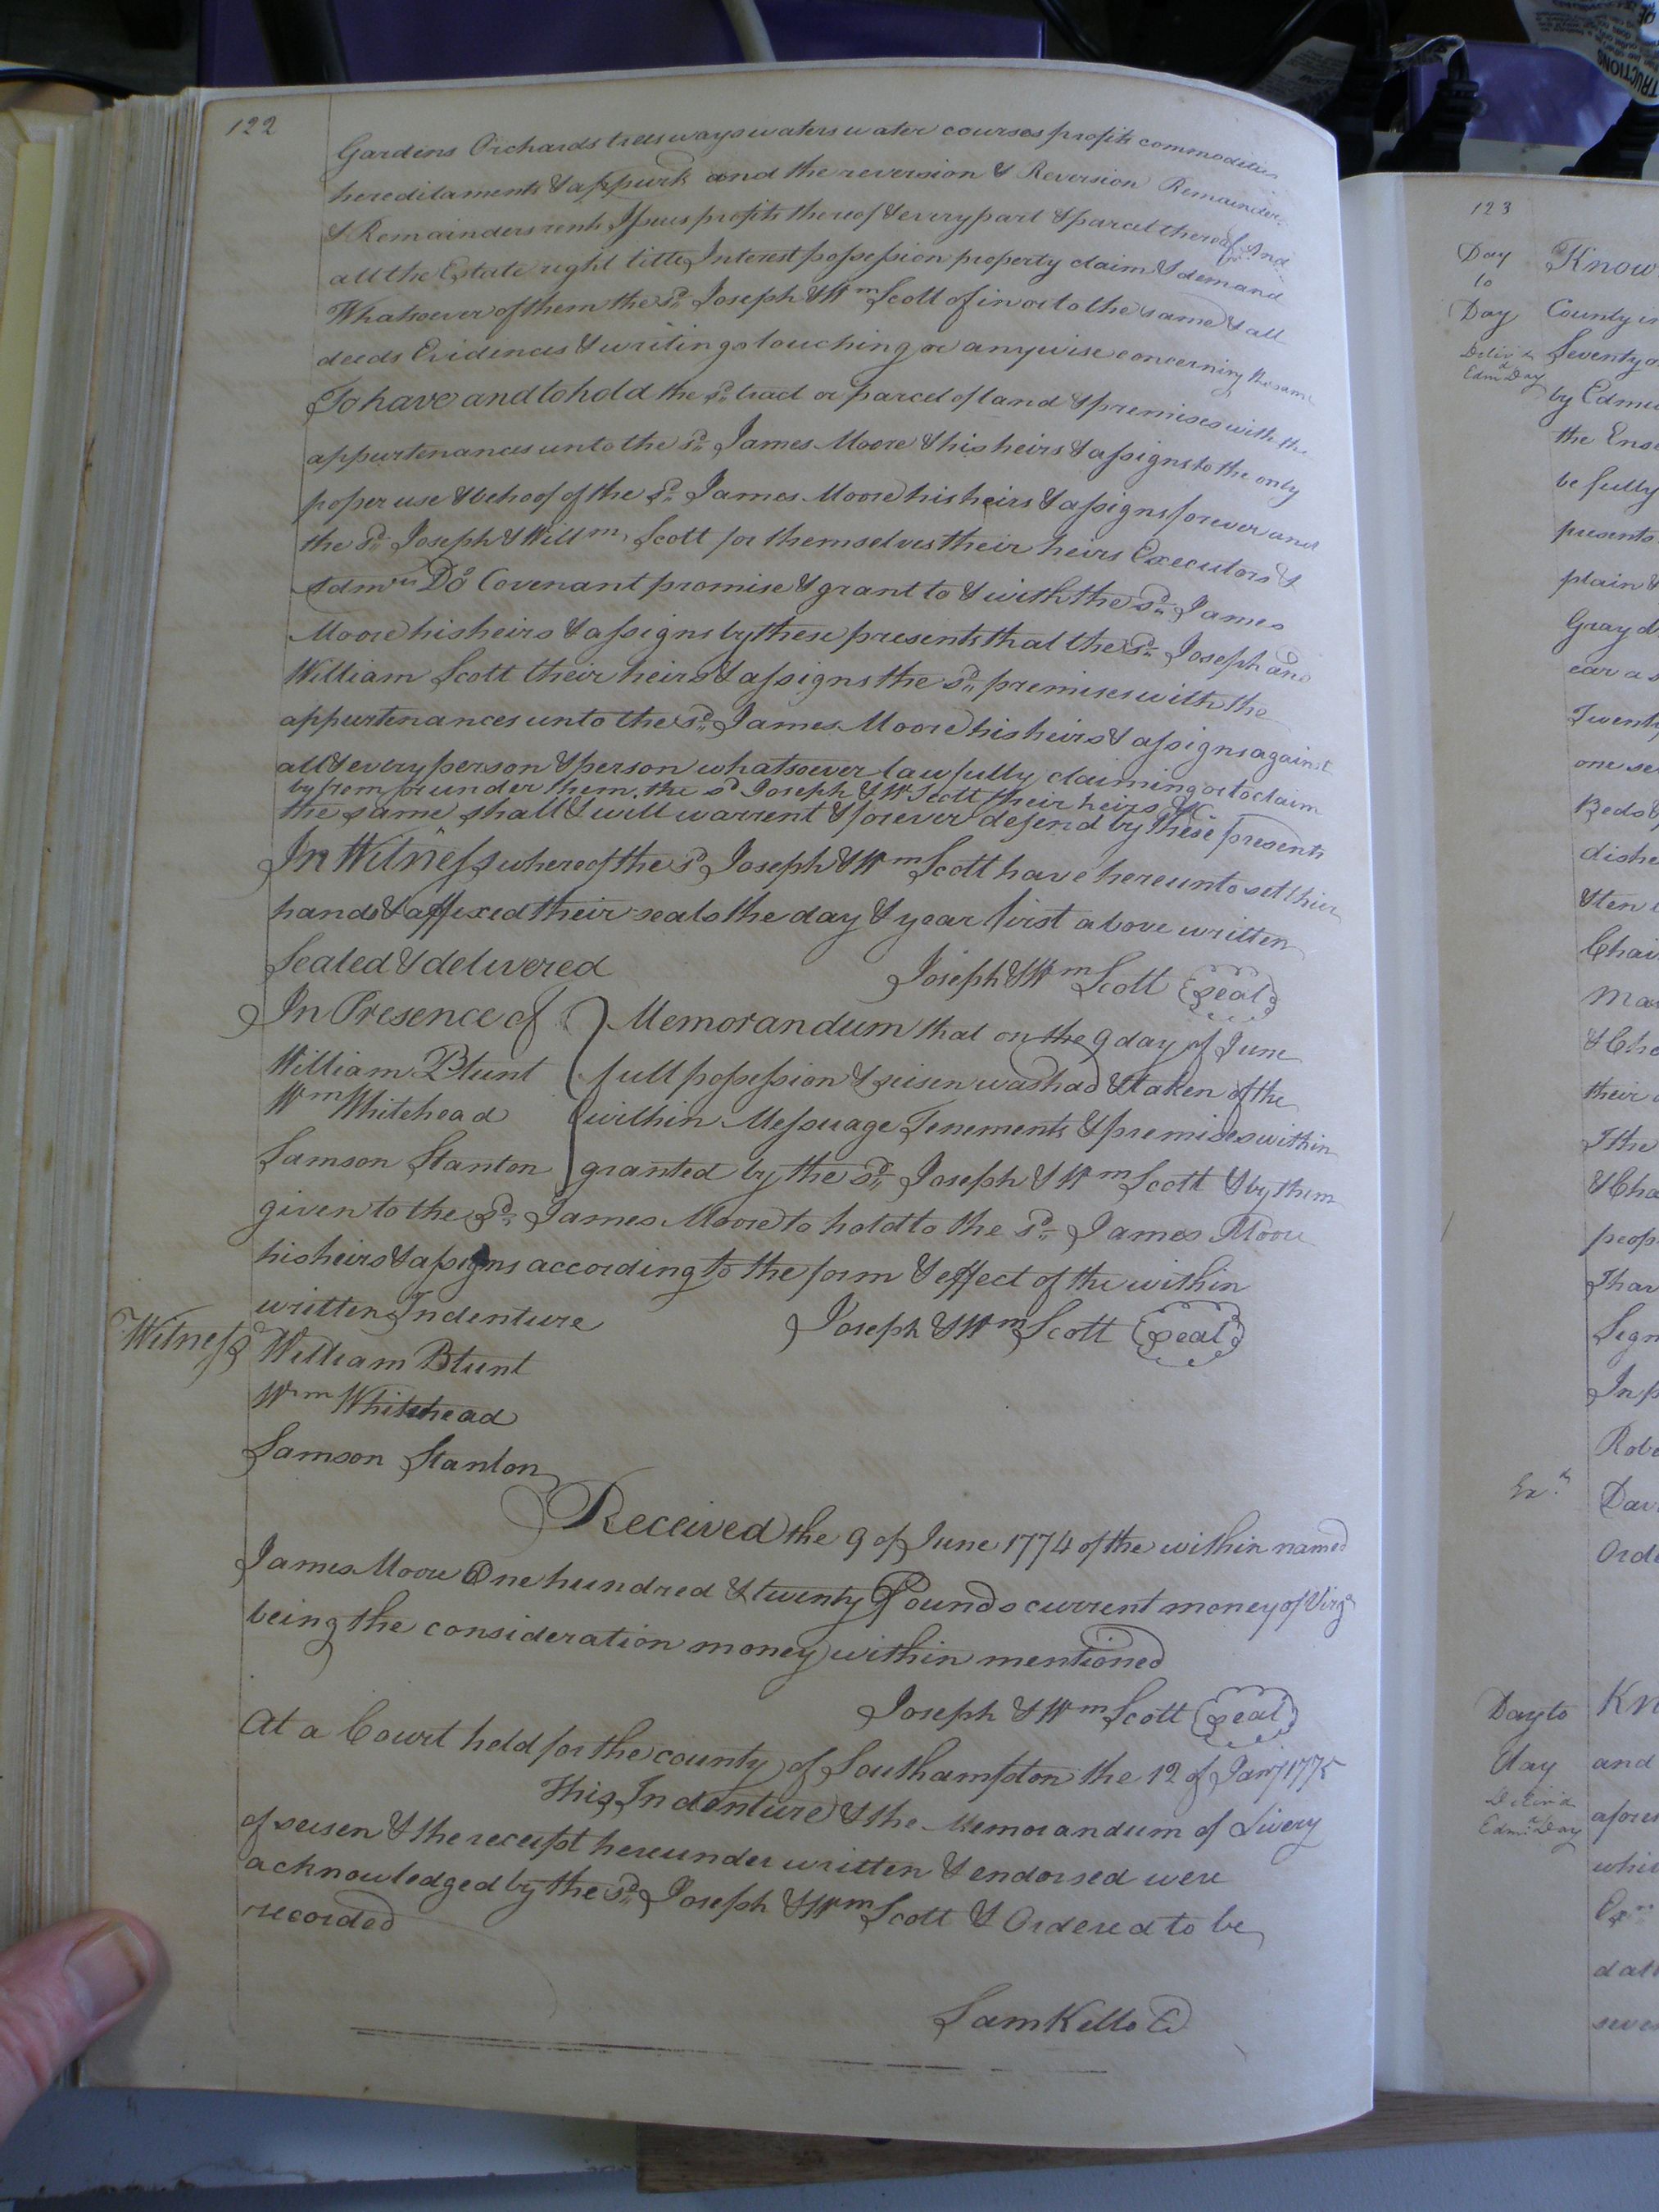 122
Gardens Orchards trees ways waters water courses profits commodities
hereditaments & appurts and the reversion & Reversion Remainder
& Remainders rents Issues profits thereof & every part & parcel thereof And
all the Estate right title Interest possession property claim & demand
Whatsoever of them the sd. Joseph & Wm Scott of in or to the same & all
deeds Evidences & writings touching or anywise concerning the same
To have and to hold the sd. tract or parcel of land & premises with the
appurtenances unto the sd. James Moore & his heirs & assigns to the only
poper use & behoof of the sd. James Moore his heirs & assigns forever and
the sd. Joseph & Willm. Scott for themselves their heirs Executors &
Admrs Do Covenant promise & grant to & with the sd. James
Moore his heirs & assigns by these presents that the sd. Joseph and
William Scott their heirs & assigns the sd. premises with the
appurtenances unto the sd. James Moore his heirs & assigns against
all & every person & person whatsoever lawfully claiming or to claim
by from or under them the sd Joseph & Wm Scott their heirs &c
the same shall & will warrent & forever defend by these presents
In Witness whereof the sd Joseph & Wm Scott have hereunto set thier
hands & affixed their seals the day & year first above written
Sealed & delivered Joseph & Wm Scott Seal
In Presence of Memorandum that on the 9 day of June
William Blunt full possession & seisen was had & taken of the
Wm Whitehead within Messuage Tenements & premises within
Samson Stanton granted by the sd. Joseph & Wm Scott & by them
given to the sd. James Moore to hold to the sd. James Moore
his heirs & assigns according to the form & effect of the within
written Indenture Joseph & Wm Scott Seal
Witness William Blunt
Wm Whitehead
Samson Stanton
Received the 9 of June 1774 of the within named
James Moore One hundred & twenty Pounds current money of Virga
being the consideration money within mentioned
Joseph & Wm Scott Seal
At a Court held for the county of Southampton the 12 of Jany 1775
This Indenture & the Memorandum of Livery
of seisen & the receipt hereunder written & endorsed were
acknowledged by the sd. Joseph & Wm Scott & Ordered to be
recorded
Sam Kello
123
Day Know
to
Day County
Seventy
Edmd Day
by
the
be fully
presents
plain &
Gray
ear
Twenty
one
Beds &
& ten
their
I the
In
Day to
day and
Edmd Day